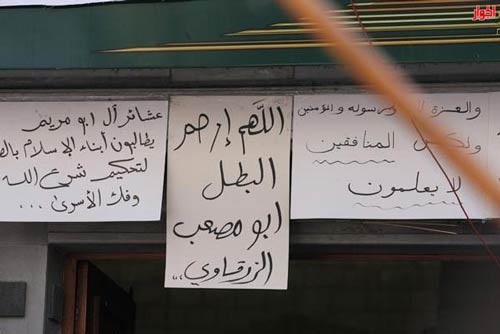 والعزة لله ولرسوله والمؤمنين
ولكن المنافقين
لا يعلمون
اللهم إرحم
البطل
ابو مصعب
الزرقاوي،،
عشائر آل ابو مريم
يطالبون أبناء الإسلام
لتحكيم شرع الله
وفك الأسرى ...